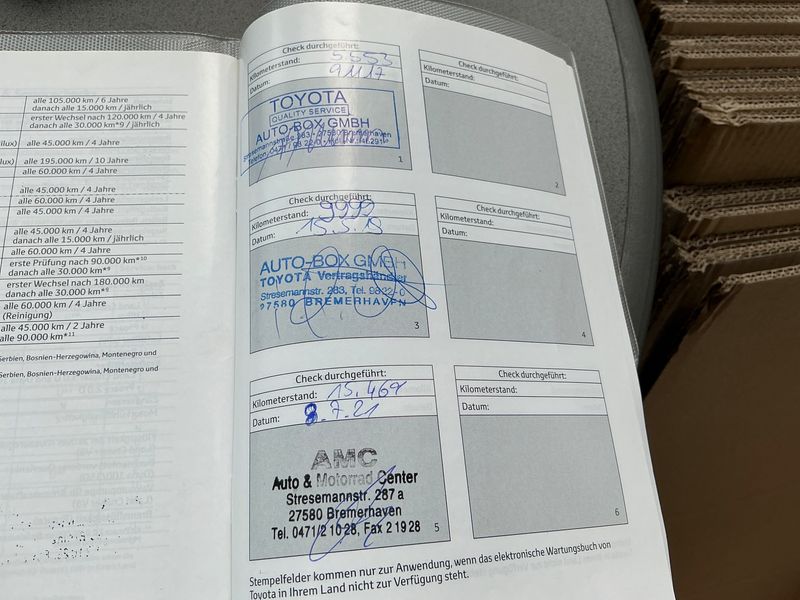 alle 105.000 km / 6 Jahre
danach alle 15.000 km / jährlich
erster Wechsel nach 120.000 km / 4 Jahre
danach alle 30.000 km*9 / jährlich
ilux) alle 45.000 km / 4 Jahre
lux) alle 195.000 km / 10 Jahre
alle 60.000 km / 4 Jahre
alle 45.000 km / 4 Jahre
alle 60.000 km / 4 Jahre
alle 45.000 km / 4 Jahre
alle 45.000 km / 4 Jahre
danach alle 15.000 km / jährlich
alle 60.000 km / 4 Jahre
erste Prüfung nach 90.000 km*10
danach alle 30.000 km*9
erster Wechsel nach 180.000 km
danach alle 30.000 km*9
alle 60.000 km / 4 Jahre
(Reinigung)
alle 45.000 km / 2 Jahre
alle 90.000 km*11
Serbien, Bosnien-Herzegowina, Montenegro und
Serbien, Bosnien-Herzegowina, Montenegro und
Check durchgeführt:
Kilometerstand: 5.553
Datum: 9.11.17
TOYOTA
QUALITY SERVICE
AUTO-BOX GMBH
Stresemannstraße 283 • 27580 Bremerhaven
1
Check durchgeführt:
Kilometerstand:
Datum:
2
Check durchgeführt:
Kilometerstand: 9999
Datum: 15.3.19
AUTO-BOX GMBH
TOYOTA Vertragshändler
Stresemannstr. 283, Tel. 9822-0
27580 BREMERHAVEN
3
Check durchgeführt:
Kilometerstand:
Datum:
4
Check durchgeführt:
Kilometerstand: 15.469
Datum: 8.7.21
AMC
Auto & Motorrad Center
Stresemannstr. 287 a
27580 Bremerhaven
Tel. 0471/2 10 28, Fax 2 19 28
5
Check durchgeführt:
Kilometerstand:
Datum:
6
Stempelfelder kommen nur zur Anwendung, wenn das elektronische Wartungsbuch von
Toyota in Ihrem Land nicht zur Verfügung steht.